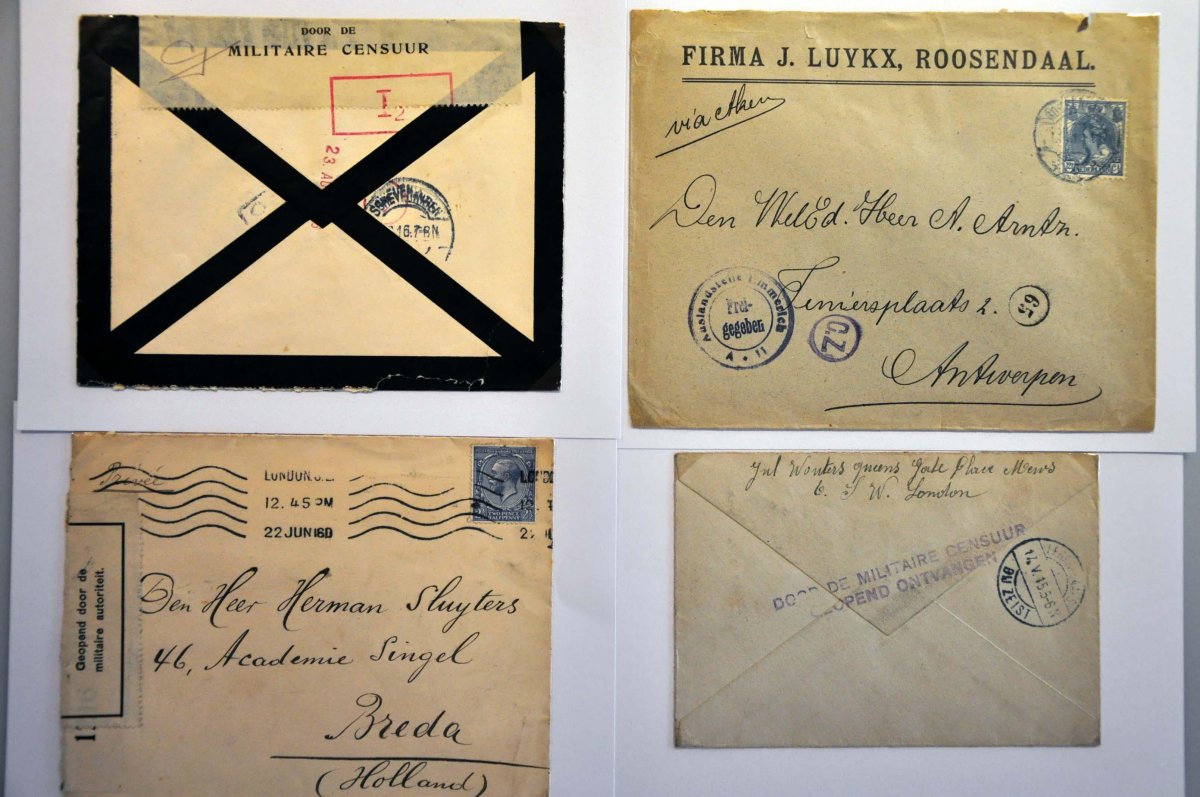 DOOR DE
MILITAIRE CENSUUR
I2
SCHEVENINGEN
16.7-8N
FIRMA J. LUYKX, ROOSENDAAL.
via Aken
Den WelEd. Heer A. Arntz.
Teniersplaats 2.
Antwerpen
Auslandstelle Emmerich
Frei-
gegeben
A • 11
C.Z.
65
NEDERLAND
Privée
LONDON.
12.45 PM
22 JUN 16
TWO PENCE
HALFPENNY
Geopend door de
militaire autoriteit.
Den Heer Herman Sluyters
46, Academie Singel
Breda
(Holland)
Jul Wouters queens Gate Place Mews
S W. London
DOOR DE MILITAIRE CENSUUR
GEOPEND ONTVANGEN
ZEIST